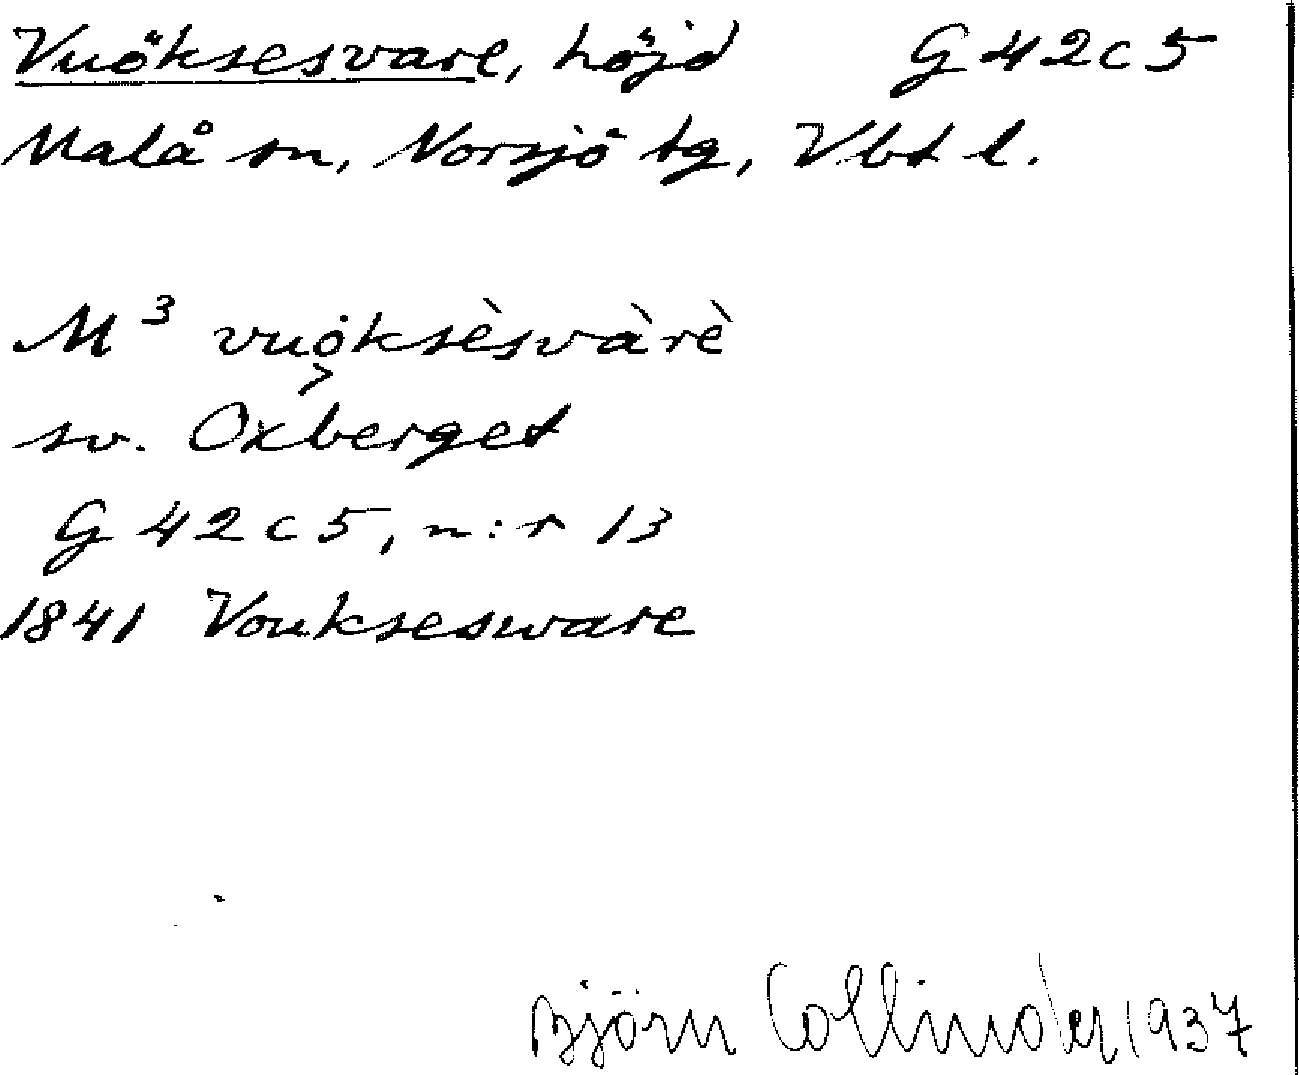 Vuöksesvare, höjd G 42 c 5
Malå sn, Norsjö tg, Vbt l.
M³ vuȯksèsvàrè
sv. Oxberget
G 42 c 5, n:r 13
1841 Vouksesware
Björn Collinder 1937